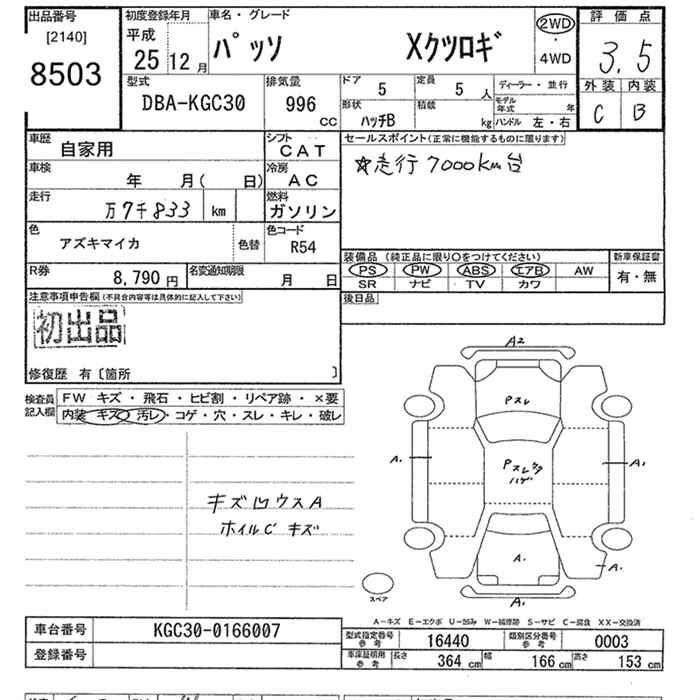 出品番号
[2140]
8503
初度登録年月
平成
25 12月
車名・グレード
パッソ Xクツロギ
2WD
・
4WD
評価点
3.5
外装 内装
C B
型式
DBA-KGC30
排気量
996
cc
ドア 5
定員 5 人
ディーラー・並行
形状
ハッチB
積載
kg
モデル年式 年
ハンドル 左・右
車歴
自家用
シフト
CAT
セールスポイント(正常に機能するものに限ります)
☆走行7000km台
車検
年 月( 日)
冷房
AC
走行
万7千833 km
燃料
ガソリン
色
アズキマイカ
色替
色コード
R54
装備品 (純正品に限り○をつけてください)
新車保証書
PS PW ABS エアB AW
有・無
SR ナビ TV カワ
R券
8,790 円
名変通知期限
月 日
後日品
注意事項申告欄(不具合内容等は具体的に記入して下さい)
初出品
修復歴 有〔箇所 〕
検査員
記入欄
FW キズ・飛石・ヒビ割・リペア跡・×要
内装 キズ 汚レ・コゲ・穴・スレ・キレ・破レ
A2
Pスレ
A.
A,
Pスレ
ハゲ
A.
A,
A,
スペア
キズ凹ウスA
ホイルC キズ
A-キズ E-エクボ U-凹み W-補修跡 S-サビ C-腐食 XX-交換済
車台番号
KGC30-0166007
登録番号
型式指定番号
参考
16440
類別区分番号
参考
0003
車庫証明用
参考
長さ 364 cm
幅 166 cm
高さ 153 cm